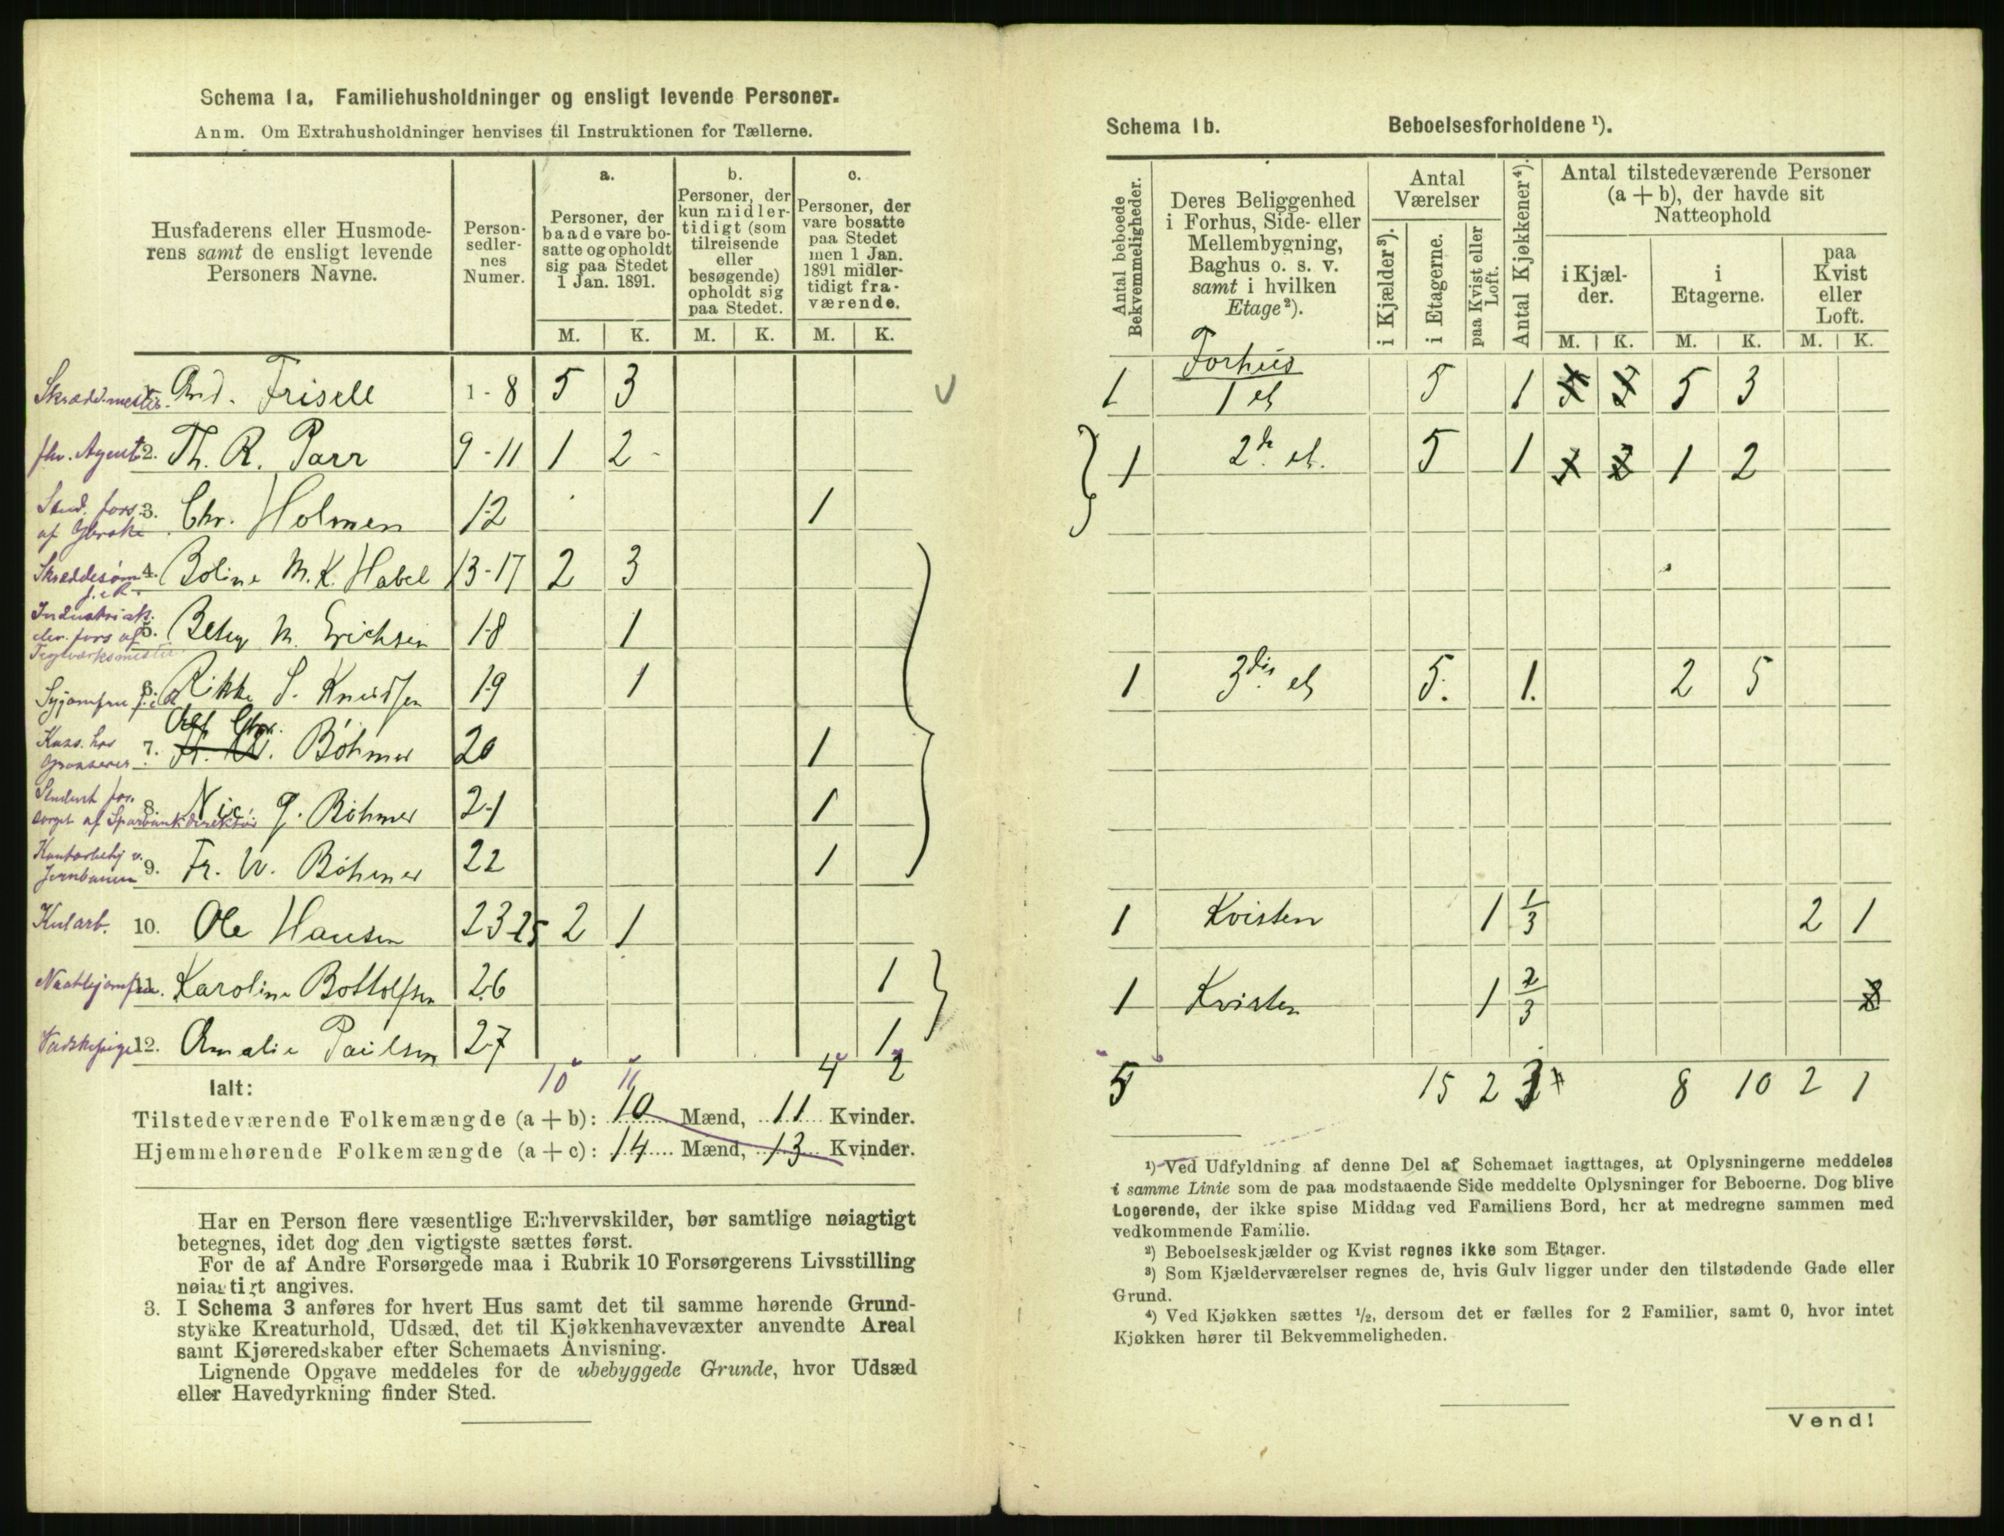 Schema 1a. Familiehusholdninger og ensligt levende Personer.
Anm. Om Extrahusholdninger henvises til Instruktionen for Tællerne.
Husfaderens eller Husmoderens samt de ensligt levende Personers Navne.
Personsedlernes Numer.
a. Personer, der baade vare bosatte og opholdt sig paa Stedet 1 Jan. 1891.
b. Personer, der kun midlertidigt (som tilreisende eller besøgende) opholdt sig paa Stedet.
c. Personer, der vare bosatte paa Stedet men 1 Jan. 1891 midlertidigt fraværende.
M. K. M. K. M. K.
Skræddmester. And. Frisell 1-8 5 3
fhv. Agent 2. Th. R. Parr 9-11 1 2
Stud. fors. af 3. Chr. Holmen 12 1
Skræddesøm 4. Boline M. K. Habel 13-17 2 3
5. Betsy M. Erichsen 18 1
Syjomfru 6. Rikke S. Knudsen 19 1
7. Chr. Böhmer 20 1
Student for- sorget af Sparbankdirektør 8. Nic G. Böhmer 21 1
Jernbanen 9. Fr. W. Böhmer 22 1
Kularb. 10. Ole Hansen 23-25 2 1
11. Karoline Bottolfsen 26 1
Vadskepige 12. Amalie Paulsen 27 1
Ialt: 10 11 4 2
Tilstedeværende Folkemængde (a + b): 10 Mænd, 11 Kvinder.
Hjemmehørende Folkemængde (a + c): 14 Mænd, 13 Kvinder.
Har en Person flere væsentlige Erhvervskilder, bør samtlige nøiagtigt
betegnes, idet dog den vigtigste sættes først.
For de af Andre Forsørgede maa i Rubrik 10 Forsørgerens Livsstilling
nøiagtigt angives.
3. I Schema 3 anføres for hvert Hus samt det til samme hørende Grund-
stykke Kreaturhold, Udsæd, det til Kjøkkenhavevæxter anvendte Areal
samt Kjøreredskaber efter Schemaets Anvisning.
Lignende Opgave meddeles for de ubebyggede Grunde, hvor Udsæd
eller Havedyrkning finder Sted.
Schema 1b. Beboelsesforholdene ¹).
Antal beboede Bekvemmeligheder.
Deres Beliggenhed i Forhus, Side- eller Mellembygning, Baghus o. s. v. samt i hvilken Etage ²).
Antal Værelser
i Kjælder ³).
i Etagerne.
paa Kvist eller Loft.
Antal Kjøkkener ⁴).
Antal tilstedeværende Personer (a + b), der havde sit Natteophold
i Kjælder.
i Etagerne.
paa Kvist eller Loft.
M. K. M. K. M. K.
Forhus
1 1 et 5 1 5 3
1 2de et. 5 1 1 2
1 3die et 5. 1. 2 5
1 Kvisten 1 1/3 2 1
1 Kvisten 1 2/3
5 15 2 3 8 10 2 1
¹) Ved Udfyldning af denne Del af Schemaet iagttages, at Oplysningerne meddeles
i samme Linie som de paa modstaaende Side meddelte Oplysninger for Beboerne. Dog blive
Logerende, der ikke spise Middag ved Familiens Bord, her at medregne sammen med
vedkommende Familie.
²) Beboelseskjælder og Kvist regnes ikke som Etager.
³) Som Kjælderværelser regnes de, hvis Gulv ligger under den tilstødende Gade eller
Grund.
⁴) Ved Kjøkken sættes ½, dersom det er fælles for 2 Familier, samt 0, hvor intet
Kjøkken hører til Bekvemmeligheden.
Vend!